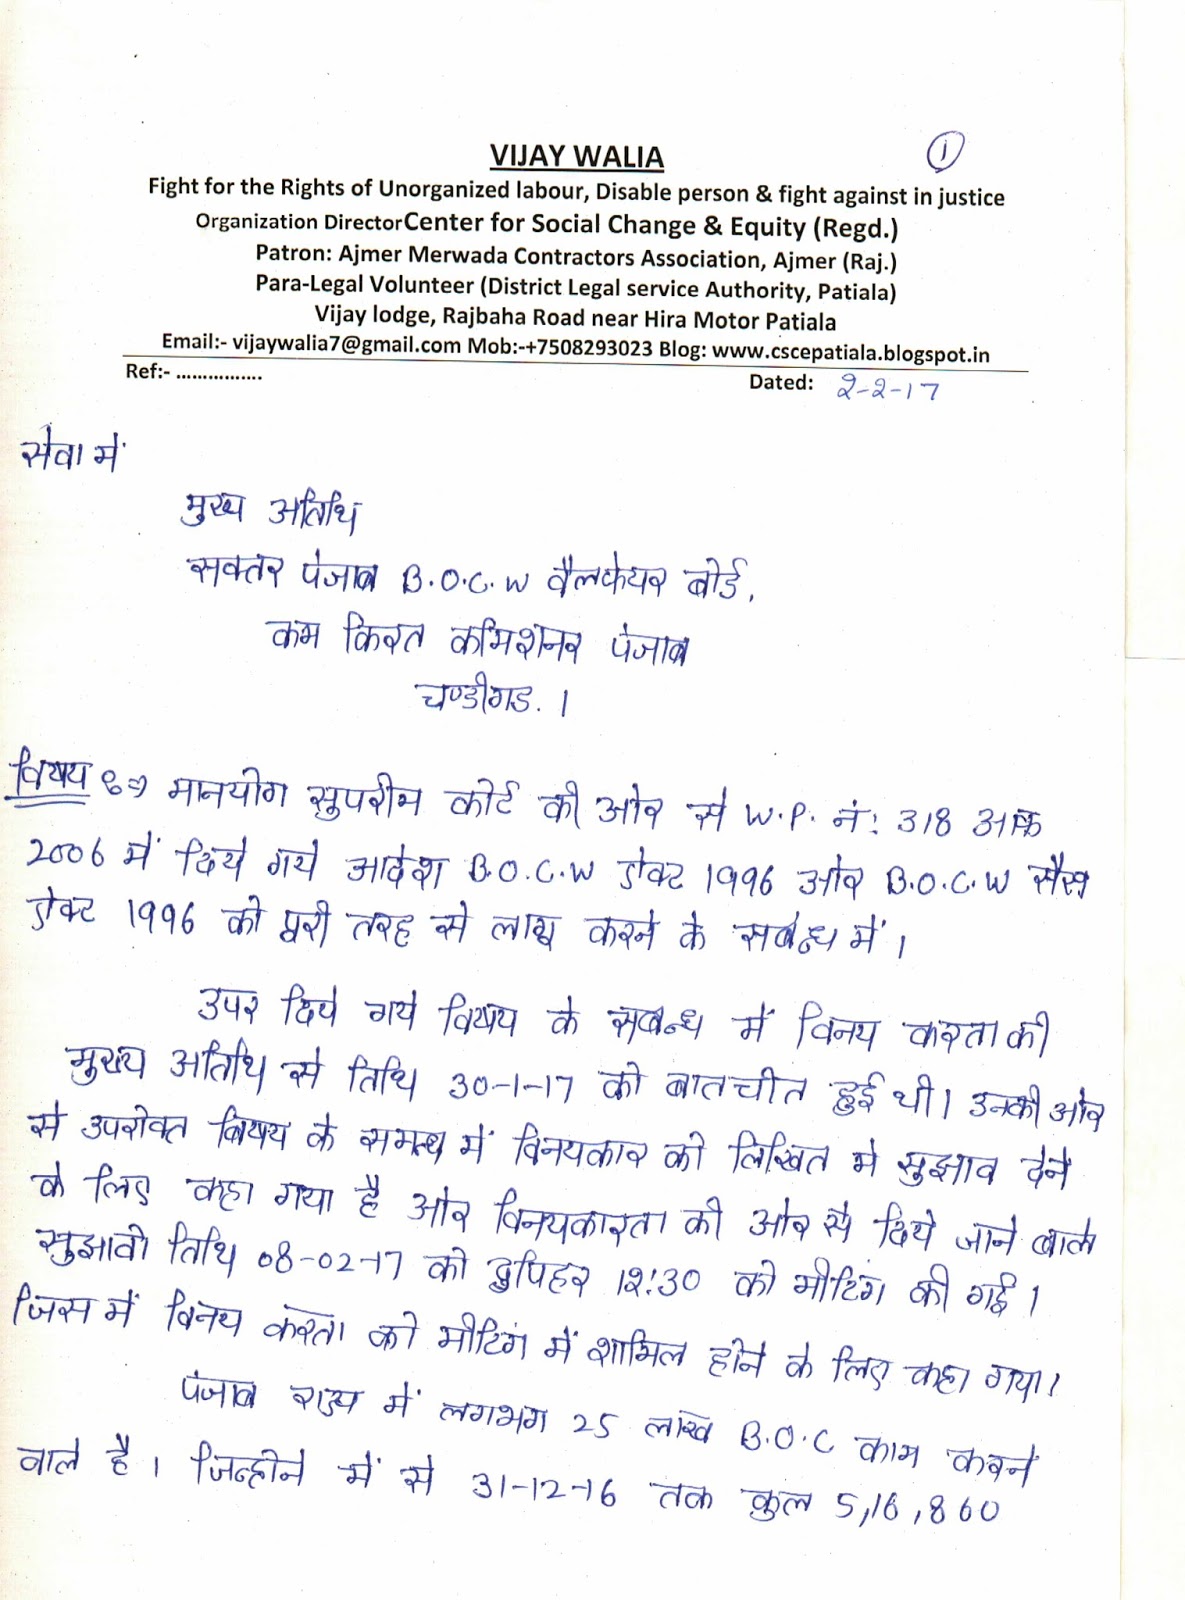 1
VIJAY WALIA
Fight for the Rights of Unorganized labour, Disable person & fight against in justice
Organization Director Center for Social Change & Equity (Regd.)
Patron: Ajmer Merwada Contractors Association, Ajmer (Raj.)
Para-Legal Volunteer (District Legal service Authority, Patiala)
Vijay lodge, Rajbaha Road near Hira Motor Patiala
Email:- vijaywalia7@gmail.com Mob:-+7508293023 Blog: www.cscepatiala.blogspot.in
Ref:- ................
Dated: 2-2-17
सेवा में
मुख्य अतिथि
सक्तर पंजाब B.O.C.W वैलफेयर बोर्ड,
कम किरत कमिशनर पंजाब
चण्डीगड. ।
विषय मानयोग सुपरीम कोर्ट की ओर से W.P. नं: 318 आफ
2006 में दिये गये आदेश B.O.C.W ऐक्ट 1996 ओर B.O.C.W सैस
ऐक्ट 1996 को पूरी तरह से लागू करने के सबंन्ध में ।
उपर दिये गये विषय के सबन्ध में विनय करता की
मुख्य अतिथि से तिथि 30-1-17 को बातचीत हुई थी। उनकी ओर
से उपरोक्त विषय के समन्ध में विनयकार को लिखित मे सुझाव देने
के लिए कहा गया है ओर विनयकारता की ओर से दिये जाने वाले
सुझावो तिथि 08-02-17 को दुपिहर 12:30 को मीटिंग की गई ।
जिस में विनय करता को मीटिंग में शामिल होने के लिए कहा गया।
पंजाब राज्य में लगभग 25 लाख B.O.C काम करने
वाले है । जिन्होने में से 31-12-16 तक कुल 5,16,860